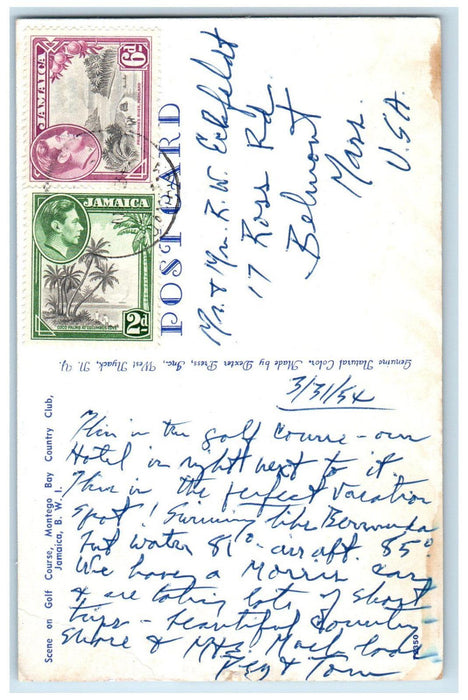 JAMAICA
6d
JAMAICA
2d
POST CARD
Mr. & Mrs. R. W. Eckfeldt
17 Ross Rd
Belmont
Mass.
USA.
Genuine Natural Color. Made by Dexter Press, Inc., West Nyack, N. Y.
Scene on Golf Course, Montego Bay Country Club,
Jamaica, B. W. I.
3/31/54
This is the golf course - our
Hotel is right next to it.
This is the perfect vacation
spot! Swimming like Bermuda
but water 81° - air aft. 85°
We have a Morris car
& are taking lots of short
trips - beautiful country
shore & Mts. Much love
Peg & Tom